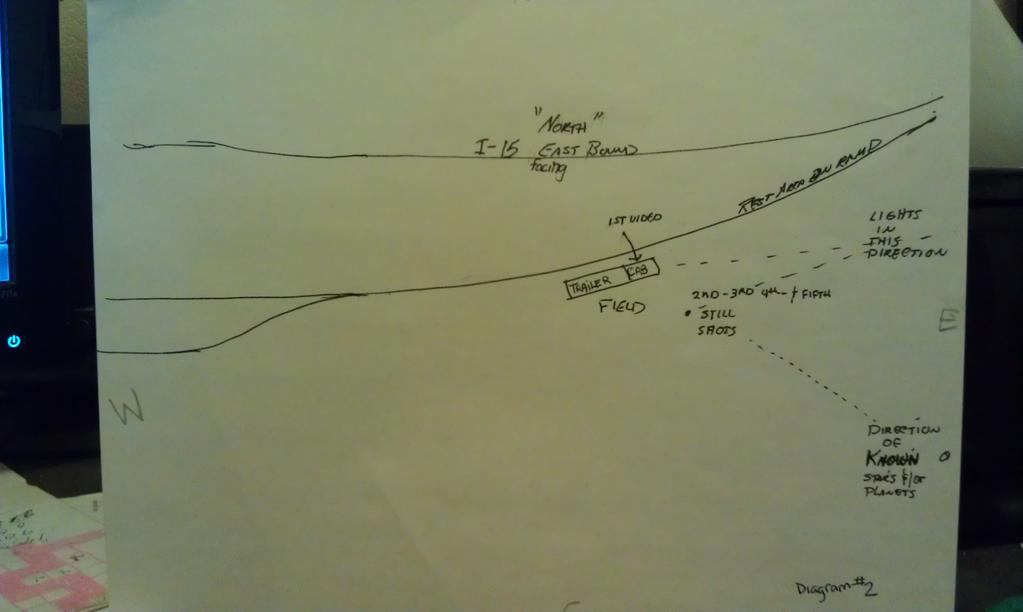 "NORTH"
I-15 EAST BOUND
facing
REST AREA ON RAMP
1ST VIDEO
TRAILER CAB
FIELD
LIGHTS
IN
THIS
DIRECTION
2ND - 3RD - 4TH - & FIFTH
STILL
SHOTS
E
W
DIRECTION
OF
KNOWN
STARS &/OR
PLANETS
Diagram #2